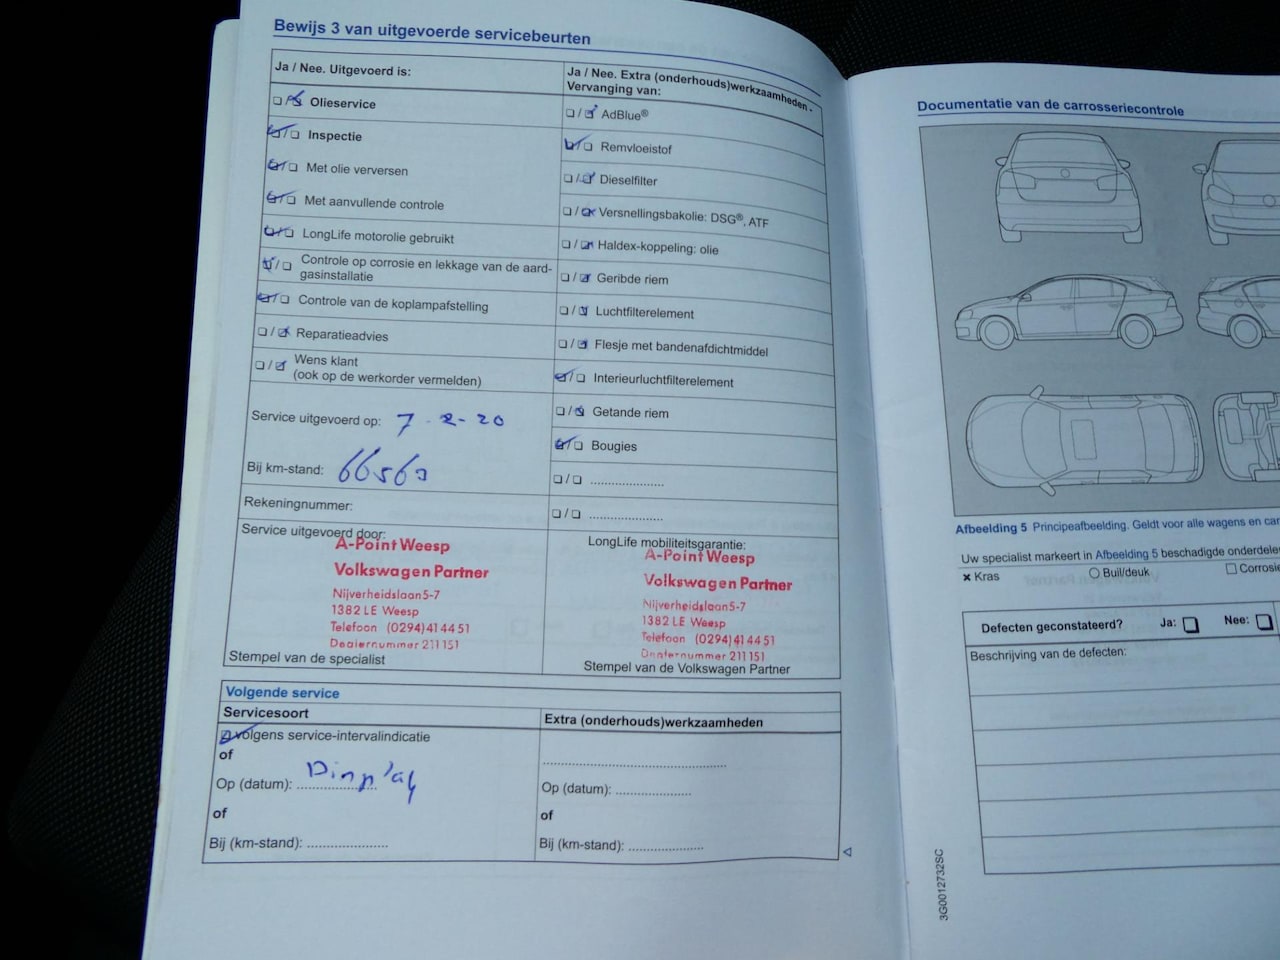 Bewijs 3 van uitgevoerde servicebeurten
Ja / Nee. Uitgevoerd is:
Olieservice
Inspectie
Met olie verversen
Met aanvullende controle
LongLife motorolie gebruikt
Controle op corrosie en lekkage van de aard-
gasinstallatie
Controle van de koplampafstelling
Reparatieadvies
Wens klant
(ook op de werkorder vermelden)
Service uitgevoerd op: 7-2-20
Bij km-stand: 66563
Rekeningnummer:
Service uitgevoerd door:
A-Point Weesp
Volkswagen Partner
Nijverheidslaan 5-7
1382 LE Weesp
Telefoon (0294)414451
Dealernummer 211151
Stempel van de specialist
Ja / Nee. Extra (onderhouds)werkzaamheden -
Vervanging van:
AdBlue®
Remvloeistof
Dieselfilter
Versnellingsbakolie: DSG®, ATF
Haldex-koppeling: olie
Geribde riem
Luchtfilterelement
Flesje met bandenafdichtmiddel
Interieurluchtfilterelement
Getande riem
Bougies
LongLife mobiliteitsgarantie:
A-Point Weesp
Volkswagen Partner
Nijverheidslaan 5-7
1382 LE Weesp
Telefoon (0294)414451
Dealernummer 211151
Stempel van de Volkswagen Partner
Volgende service
Servicesoort
volgens service-intervalindicatie
of
Op (datum): Display
of
Bij (km-stand):
Extra (onderhouds)werkzaamheden
Op (datum):
of
Bij (km-stand):
Documentatie van de carrosseriecontrole
Afbeelding 5 Principeafbeelding. Geldt voor alle wagens en
Uw specialist markeert in Afbeelding 5 beschadigde
Kras
Buil/deuk
Defecten geconstateerd? Ja: Nee:
Beschrijving van de defecten:
3G0012732SC